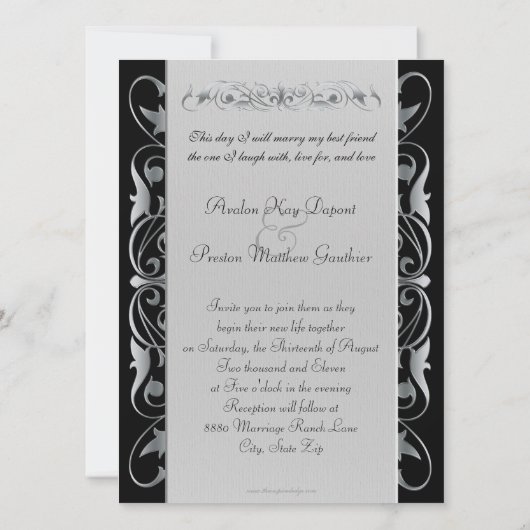 This day I will marry my best friend
the one I laugh with, live for, and love
Avalon Kay Dapont
&
Preston Matthew Gauthier
Invite you to join them as they
begin their new life together
on Saturday, the Thirteenth of August
Two thousand and Eleven
at Five o'clock in the evening
Reception will follow at
8880 Marriage Ranch Lane
City, State Zip